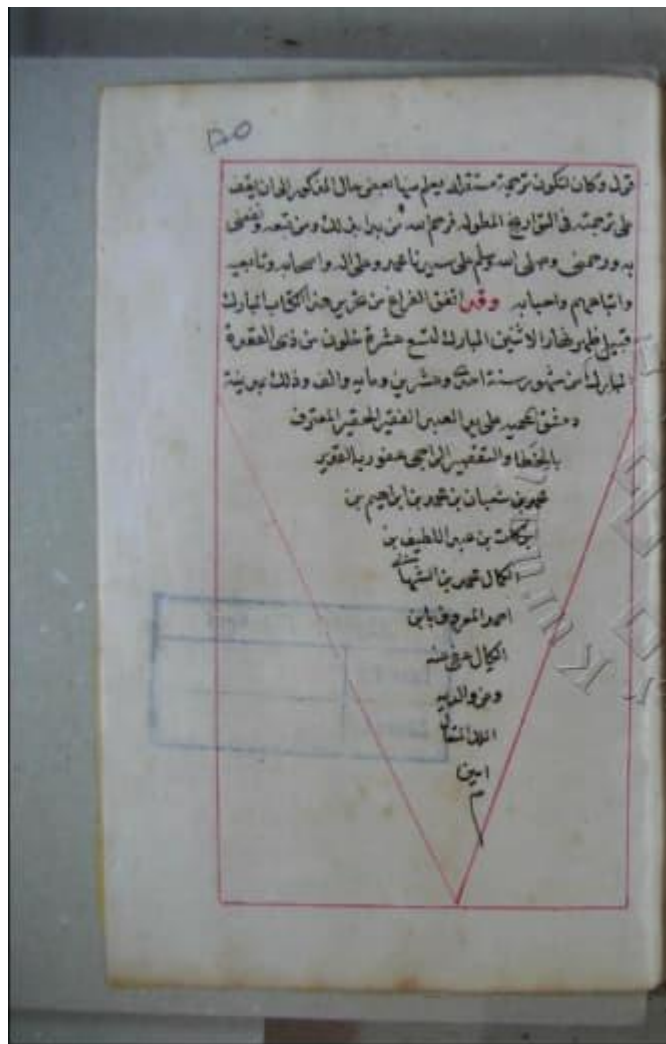 قول وكان لتكون ترجمة مستقلة يعلم منها بعض حال المذكور الى ان يقف
على ترجمته في التواريخ المطوله فرحم الله من بدا بذلك ومن تبعه ونفعني
به ورحمني وصلى الله وسلم على سيدنا محمد وعلى اله واصحابه وتابعيه
واتباعهم واحبابه وقد اتفق الفراغ من تحرير هذا الكتاب المبارك
قبيل ظهر نهار الاثنين المبارك لتسع عشرة خلون من ذي القعدة
المبارك من شهور سنة احدى وعشرين ومايه والف وذلك بمدينة
دمشق المحميه على يد العبد الفقير الحقير المعترف
بالخطا والتقصير الراجي عفو ربه القدير
محمد بن شعبان بن محمد بن ابراهيم بن
بركات بن عبد اللطيف بن
الكمال محمد بن الشهاب
احمد المعروف بابن
الكيال عفى عنه
وعن والديه
الملك المتعال
امين
م